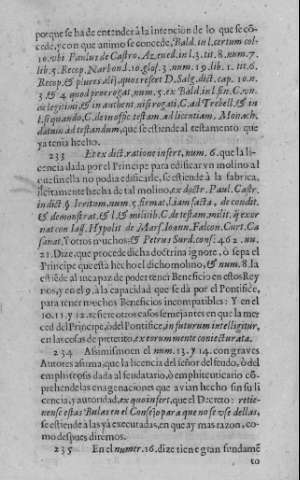 porque se ha de entender à la intencion de lo que se cō-
cede, y con que animo se concede, Bald. in l. certum col-
10. vbi Paulus de Castro. Az. ened. in l. 3. tit. 8. num. 7.
lib. 5. Recop. Narbon d. 10. glos. 3. num. 19. lib. 1. tit. 6.
Recop. & plures alij, quos refert D. Salg. dict. cap. 10. n.
3 & 4 quod prorrogat, num. 5. ex Bald. in l. fin. C. vn.
de legitimi, & in authent. nisi rogati, C. ad Trebell. & in
l. si quando, C. de inoffic. testam. ad licentiam, Monach.
datam ad testandum, que se estiende al testamento que
ya tenia hecho.
233 Et ex dict. ratione insert, num. 6. que la li-
cencia dada por el Principe para edificar vn molino al
que sin ella no podia edificarle, se estiende à la fabrica,
ilicitamente hecha de tal molino, ex doctr. Paul. Castr.
in dict. §. leritom, num. 5. firmat, l. iam facta, de condit.
& demonstrat. & l. & militib. C. de testam. milit. q̃ exor
nat con Iass. Hypolit de Mars. Ioann. Falcon. Curt. Ca
sanat. Y otros muchos: & Petrus Surd. cons. 462. nu.
21. Dize, que procede dicha doctrina ignore, ò sepa el
Principe que està hecho el dicho molino, & num. 8. la
estiēde al incapaz de poder tener Beneficio en estos Rey
nos, y en el 9. à la capacidad que se dà por el Pontifice,
para tener muchos Beneficios incompatibles: Y en el
10. 11. y 12. refiere otros casos semejantes en que la mer
ced del Principe, ò del Pontifice, in futurum intelligitur,
en las cosas de preterito, ex torum coniecturata.
234 Assimismo en el num. 13. y 14. con graves
Autores afirma, que la licencia del señor del feudo, ò del
emphiteosis dada al feudatario, ò emphiteuticario cō-
prehende las enagenaciones que avian hecho sin su li
cencia, y autoridad, ex quo insert, que el Decreto: retie-
nense estas Bulas en el Consejo para que no se vse dellas,
se estiende à las ya executadas, en que ay mas razon, co-
mo despues diremos.
235 En el numer. 16. dize tiene gran fundamē
to